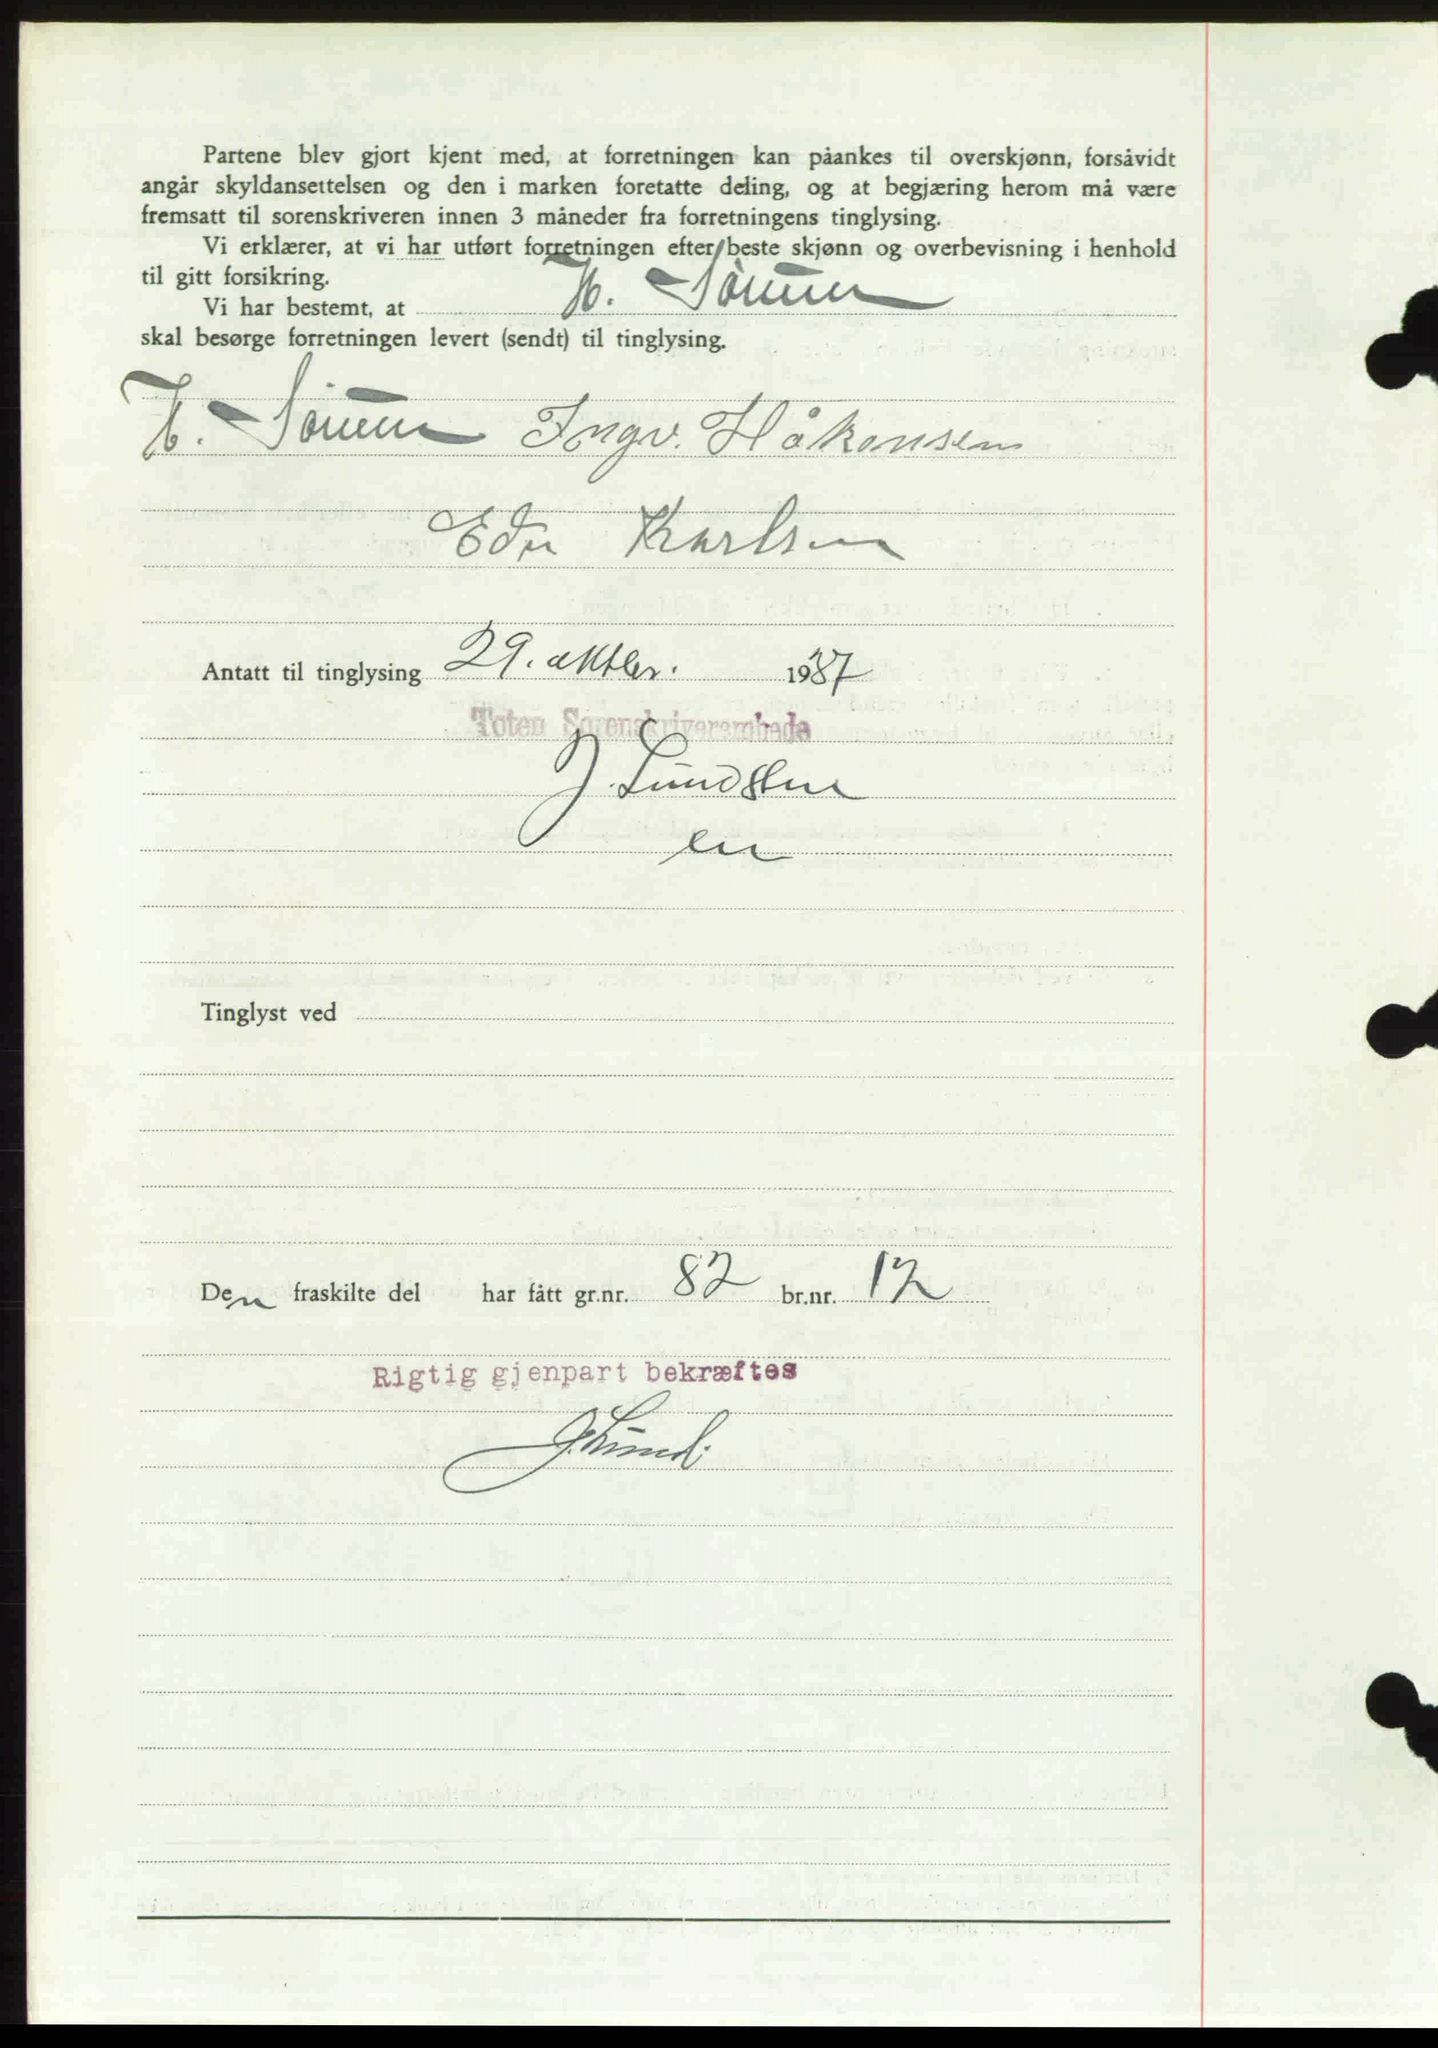 Partene blev gjort kjent med, at forretningen kan påankes til overskjønn, forsåvidt
angår skyldansettelsen og den i marken foretatte deling, og at begjæring herom må være
fremsatt til sorenskriveren innen 3 måneder fra forretningens tinglysing.
Vi erklærer, at vi har utført forretningen efter beste skjønn og overbevisning i henhold
til gitt forsikring.
Vi har bestemt, at H.
skal besørge forretningen levert (sendt) til tinglysing.
H. Ingv. Håkonsen
Karlsen
Antatt til tinglysing 29. 1937
Toten Sorenskriverembede
J.
Tinglyst ved
Den fraskilte del har fått gr.nr. 82 br.nr. 12
Rigtig gjenpart bekræftes
J. Lund.